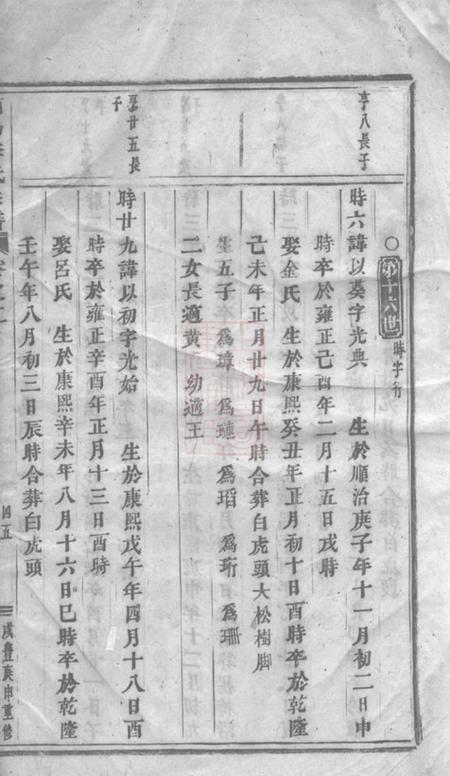 ○第十六世 時字行
亨八長子
時六諱以葵字光典 生於順治庚子年十一月初二日申
時卒於雍正己酉年二月十五日戌時
娶金氏 生於康熙癸丑年正月初十日酉時卒於乾隆
己未年正月廿九日午時合葬白虎頭大松樹脚
生五子 為璋 為璉 為瑫 為珩 為珊
二女長適黃 幼適王
亨廿五長子
時廿九諱以初字光始 生於康熙戊午年四月十八日酉
時卒於雍正辛酉年正月十三日酉時
娶呂氏 生於康熙辛未年八月十六日巳時卒於乾隆
壬午年八月初三日辰時合葬白虎頭
四五
咸豐庚申重修